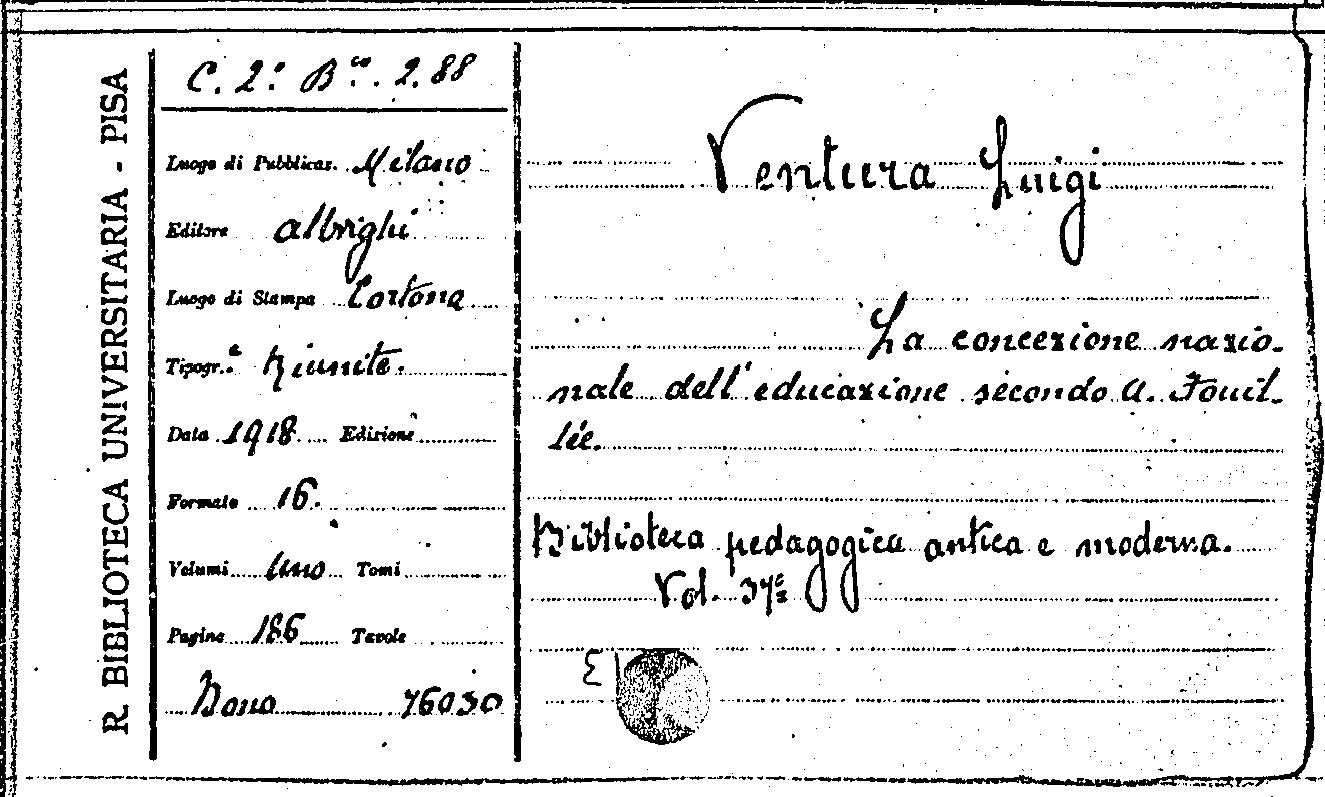 R. BIBLIOTECA UNIVERSITARIA - PISA
C. 2º. Bᶜᵒ. 2. 88
Luogo di Pubblicaz. Milano
Editore Albrighi
Luogo di Stampa Cortona
Tipogr.ᵃ Riunite.
Data 1918 Edizione
Formato 16.
Volumi uno Tomi
Pagine 186 Tavole
Dono 76030
Ventura Luigi
La concezione nazio-
nale dell'educazione secondo A. Fouil-
lée.
Biblioteca pedagogica antica e moderna.
Vol. 37º